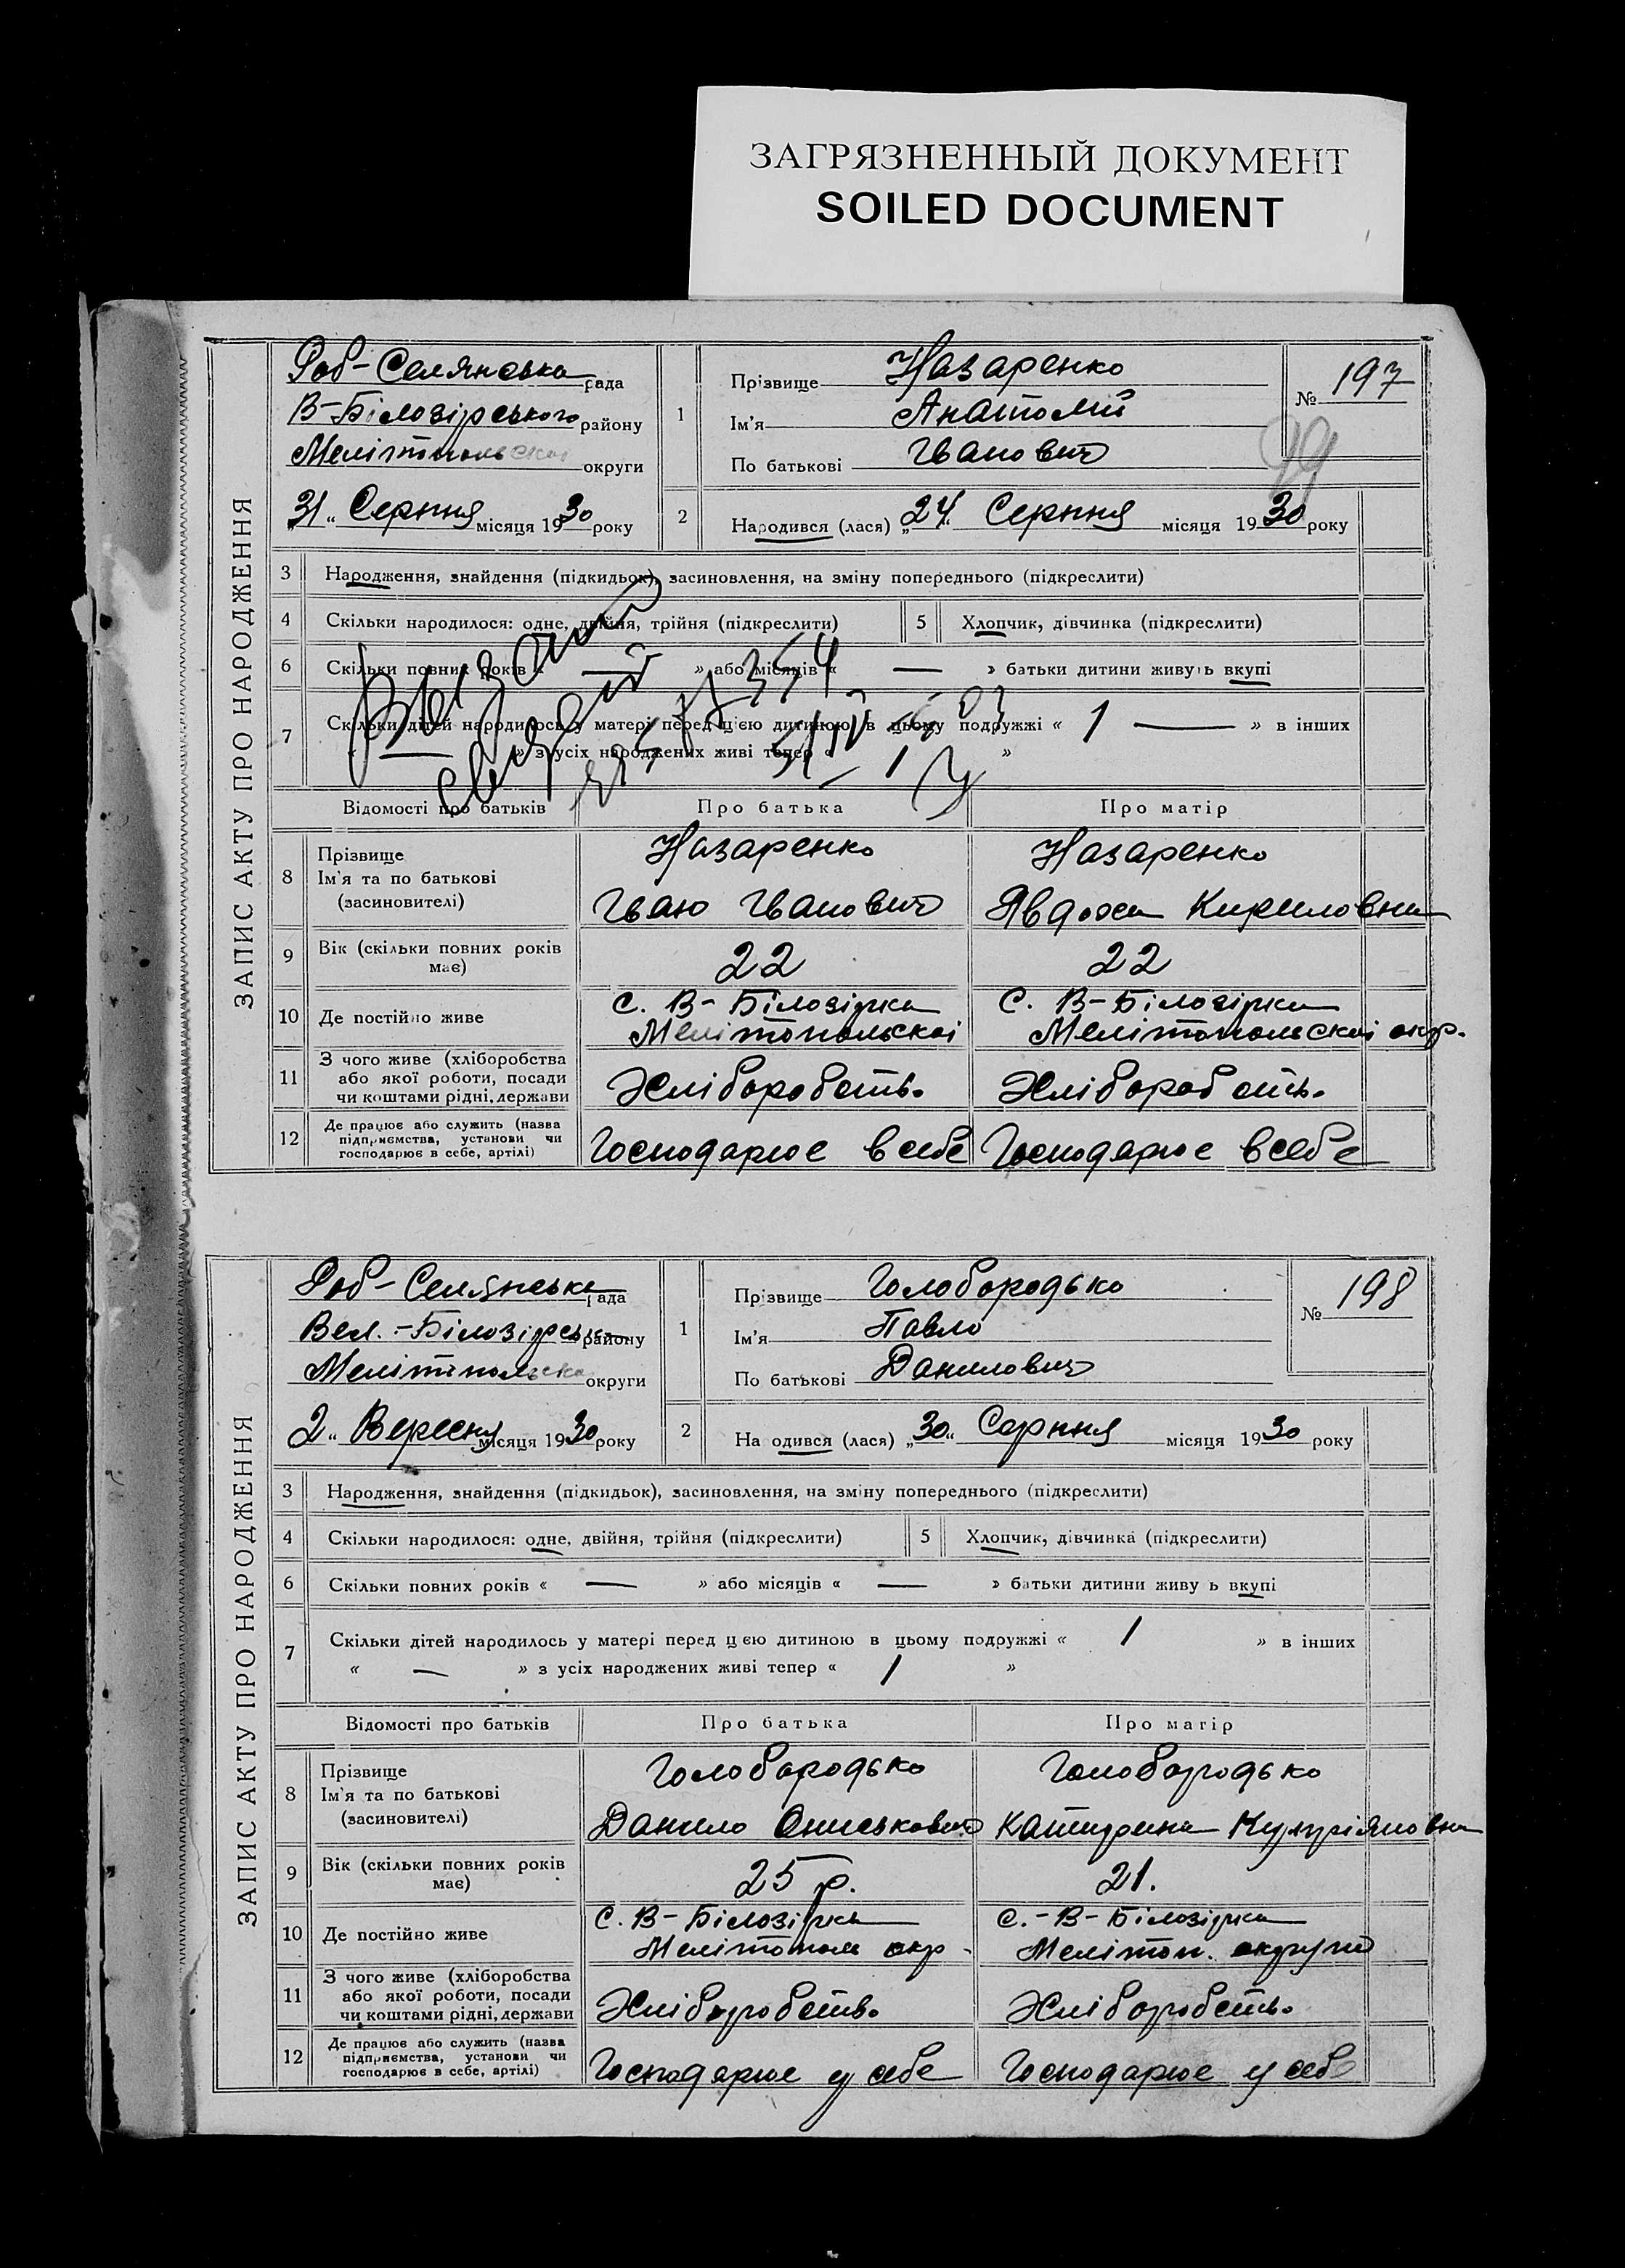 ЗАГРЯЗНЕННЫЙ ДОКУМЕНТ
SOILED DOCUMENT
ЗАПИС АКТУ ПРО НАРОДЖЕННЯ
Роб-Селянська рада
В-Білозірського району
Мелітопольської округи
31 „ Серпня місяця 1930 року
1 Прізвище Назаренко
Ім'я Анатолій
По батькові Іванович
№ 197
99
2 Народився (лася) „24“ Серпня місяця 1930 року
3 Народження, знайдення (підкидьок), засиновлення, на зміну попереднього (підкреслити)
4 Скільки народилося: одне, двійня, трійня (підкреслити) 5 Хлопчик, дівчинка (підкреслити)
6 Скільки повних років « — » або місяців « — » батьки дитини живуть вкупі
7 Скільки дітей народилось у матері перед цією дитиною в цьому подружжі « 1 — » в інших
« — » з усіх народжених живі тепер « 1 »
Відомості про батьків Про батька Про матір
8 Прізвище Ім'я та по батькові (засиновителі)
Назаренко Назаренко
Іван Іванович Явдоха Кириловна
9 Вік (скільки повних років має) 22 22
10 Де постійно живе
с. В-Білозірка с. В-Білозірка
Мелітопольскої Мелітопольскої окр.
11 З чого живе (хліборобства або якої роботи, посади чи коштами рідні, держави
Хліборобств. Хліборобств.
12 Де працює або служить (назва підприємства, установи чи господарює в себе, артілі)
Господарює в себе Господарює в себе
ЗАПИС АКТУ ПРО НАРОДЖЕННЯ
Роб-Селянська рада
Вел.-Білозірськ району
Мелітопольська округи
2 „ Вересня місяця 1930 року
1 Прізвище Голобородько
Ім'я Павло
По батькові Данилович
№ 198
2 Народився (лася) „30“ Серпня місяця 1930 року
3 Народження, знайдення (підкидьок), засиновлення, на зміну попереднього (підкреслити)
4 Скільки народилося: одне, двійня, трійня (підкреслити) 5 Хлопчик, дівчинка (підкреслити)
6 Скільки повних років « — » або місяців « — » батьки дитини живу ь вкупі
7 Скільки дітей народилось у матері перед цією дитиною в цьому подружжі « 1 » в інших
« — » з усіх народжених живі тепер « 1 »
Відомості про батьків Про батька Про матір
8 Прізвище Ім'я та по батькові (засиновителі)
Голобородько Голобородько
Данило Катирина
9 Вік (скільки повних років має) 25 р. 21.
10 Де постійно живе
с. В-Білозірка с.-В-Білозірка
Мелітополь окр. Мелітоп. округи
11 З чого живе (хліборобства або якої роботи, посади чи коштами рідні, держави
Хліборобств. Хліборобств.
12 Де працює або служить (назва підприємства, установи чи господарює в себе, артілі)
Господарює у себе Господарює у себе